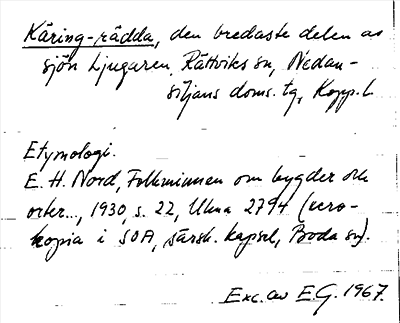 Käring-rådda, den bredaste delen av
sjön Ljugaren, Rättviks sn, Nedan-
siljans doms. tg, Kopp. l.
Etymologi.
E. H. Nord, Folkminnen om bygder och
orter..., 1930, s. 22, Uma 2794 (xero-
kopia i SOA, särsk. kapsel, Boda sn).
Exc. av E.G. 1967.